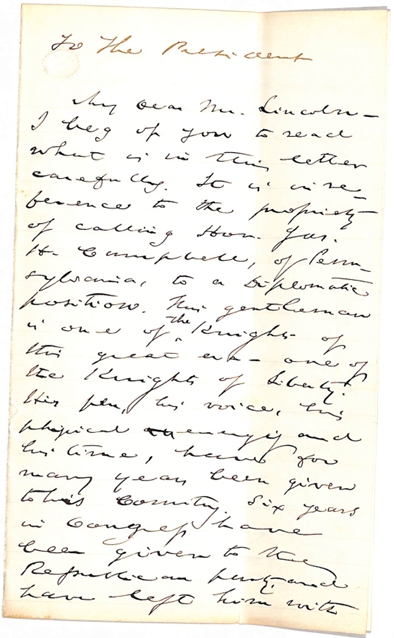 To The President
My dear Mr. Lincoln—
I beg of you to read
what is in this letter
carefully. It is in re-
ference to the propriety
of calling Hon. Jas.
H. Campbell, of Penn-
sylvania, to a Diplomatic
position. This gentleman
is one of the Knights of
this great era — one of
the Knights of Liberty.
His pen, his voice, his
physical energy and
his time, have for
many years been given
to his Country. Six years
in Congress have
been given to the
Republican party and
have left him with